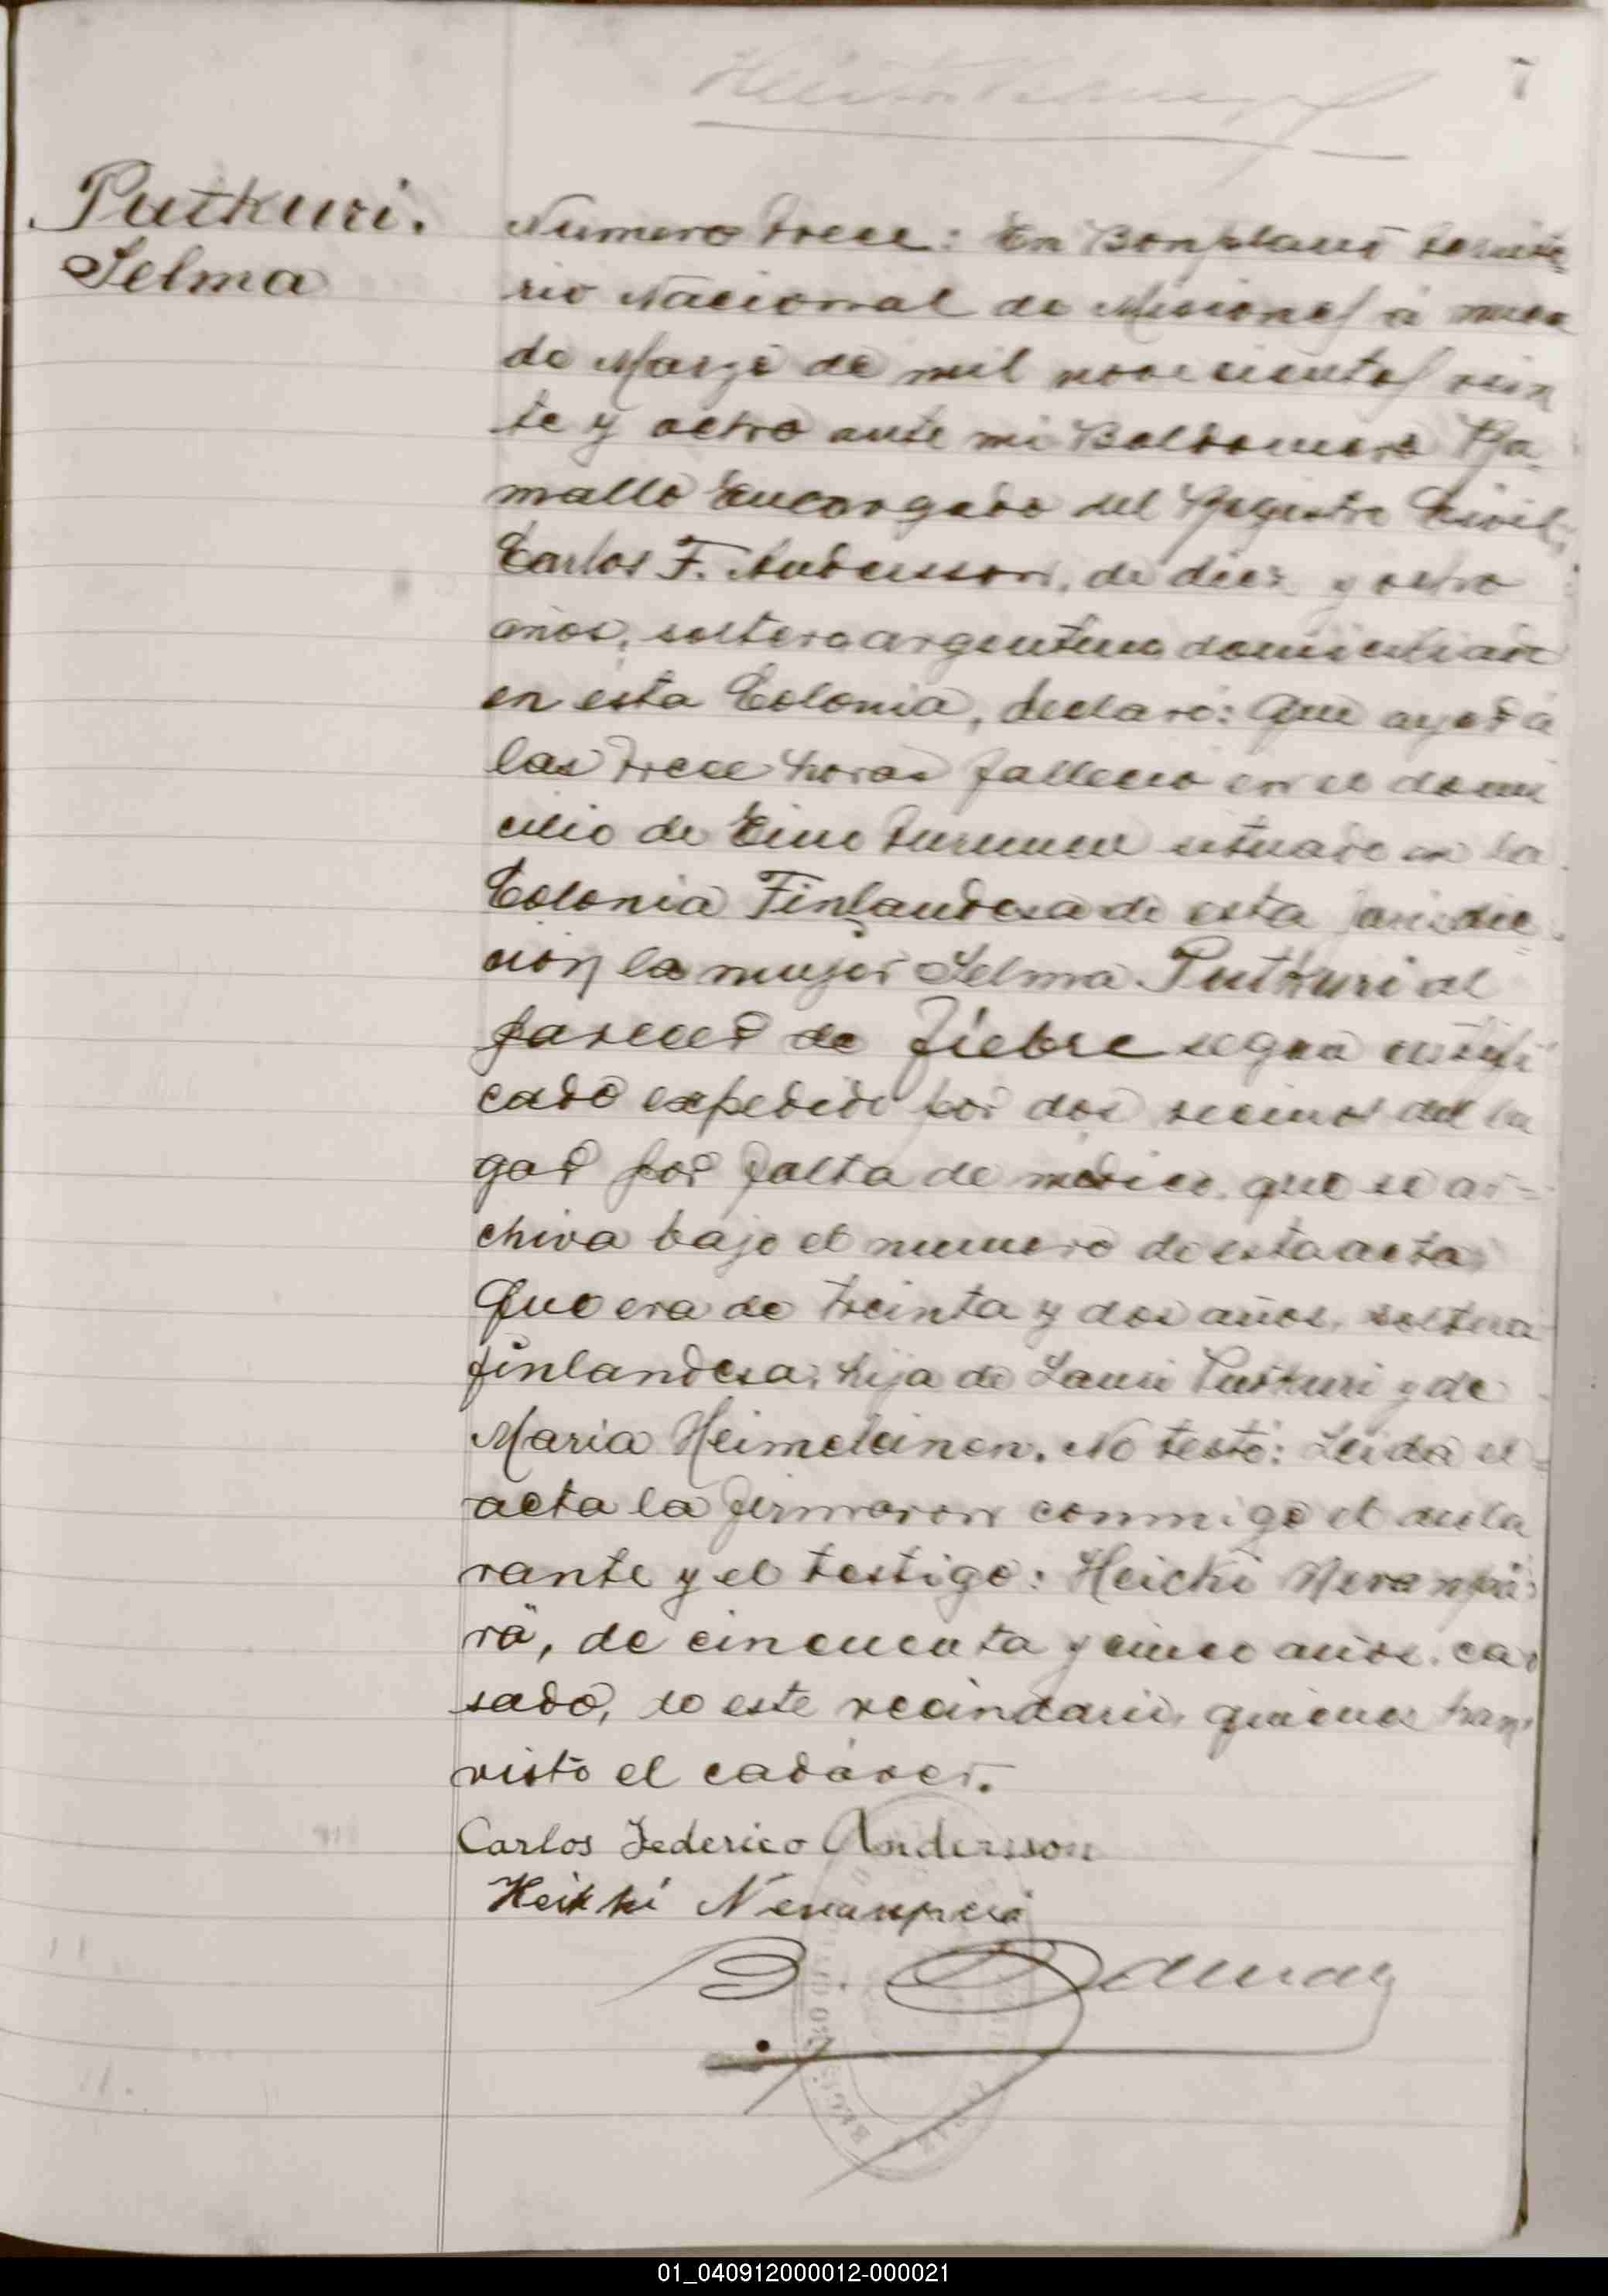 7
Putkuri.
Selma
Numero trece: En Bonpland territo-
rio Nacional de Misiones á nueve
de Marzo de mil novecientos vein
te y ocho ante mi Baldomero Ra-
mallo Encargado del Registro Civil,
Carlos F. Andersson, de diez y ocho
años, soltero argentino domiciliado
en ésta Colonia, declaró: Que ayer á
las trece horas fallecio en el domi
cilio de Eino situado en la
Colonia Finlandesa de esta jurisdic-
ción la mujer Selma Putkuri al
parecer de fiebre segun certifi
cado expedido por dos vecinos del lu
gar por falta de medico, que se ar-
chiva bajo el numero de esta acta
Que era de treinta y dos años, soltera
finlandesa, hija de Lauri Putkuri y de
Maria Heimeleinen. No testó: Leida el
acta la firmaron conmigo el decla
rante y el testigo: Heicki Neranpä:
rä, de cincuenta y cinco años, ca
sado, de este vecindario, quienes han
visto el cadáver.
Carlos Federico Andersson
Heikki
B.
01_040912000012-000021